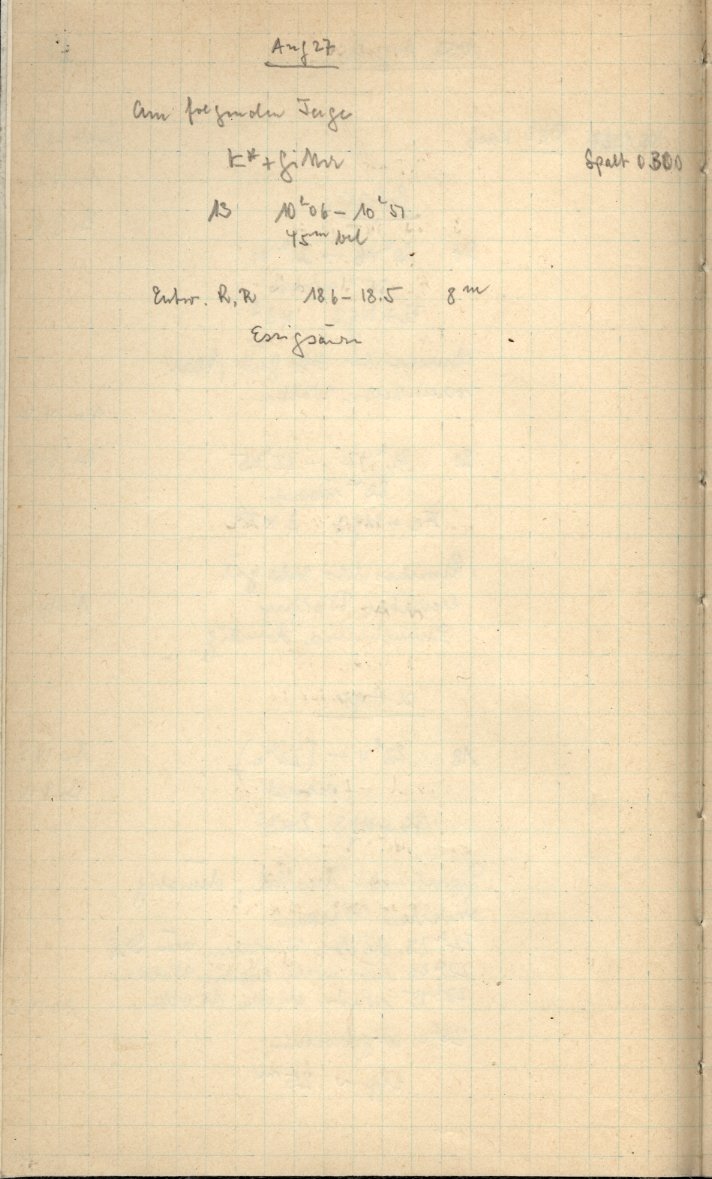 Aug 27
Am folgenden Tage
K* + Gitter
Spalt 0.300
13 10h06 - 10h51
45m bel
Entw. R, R 18.6 - 18.5 8m
Essigsäure